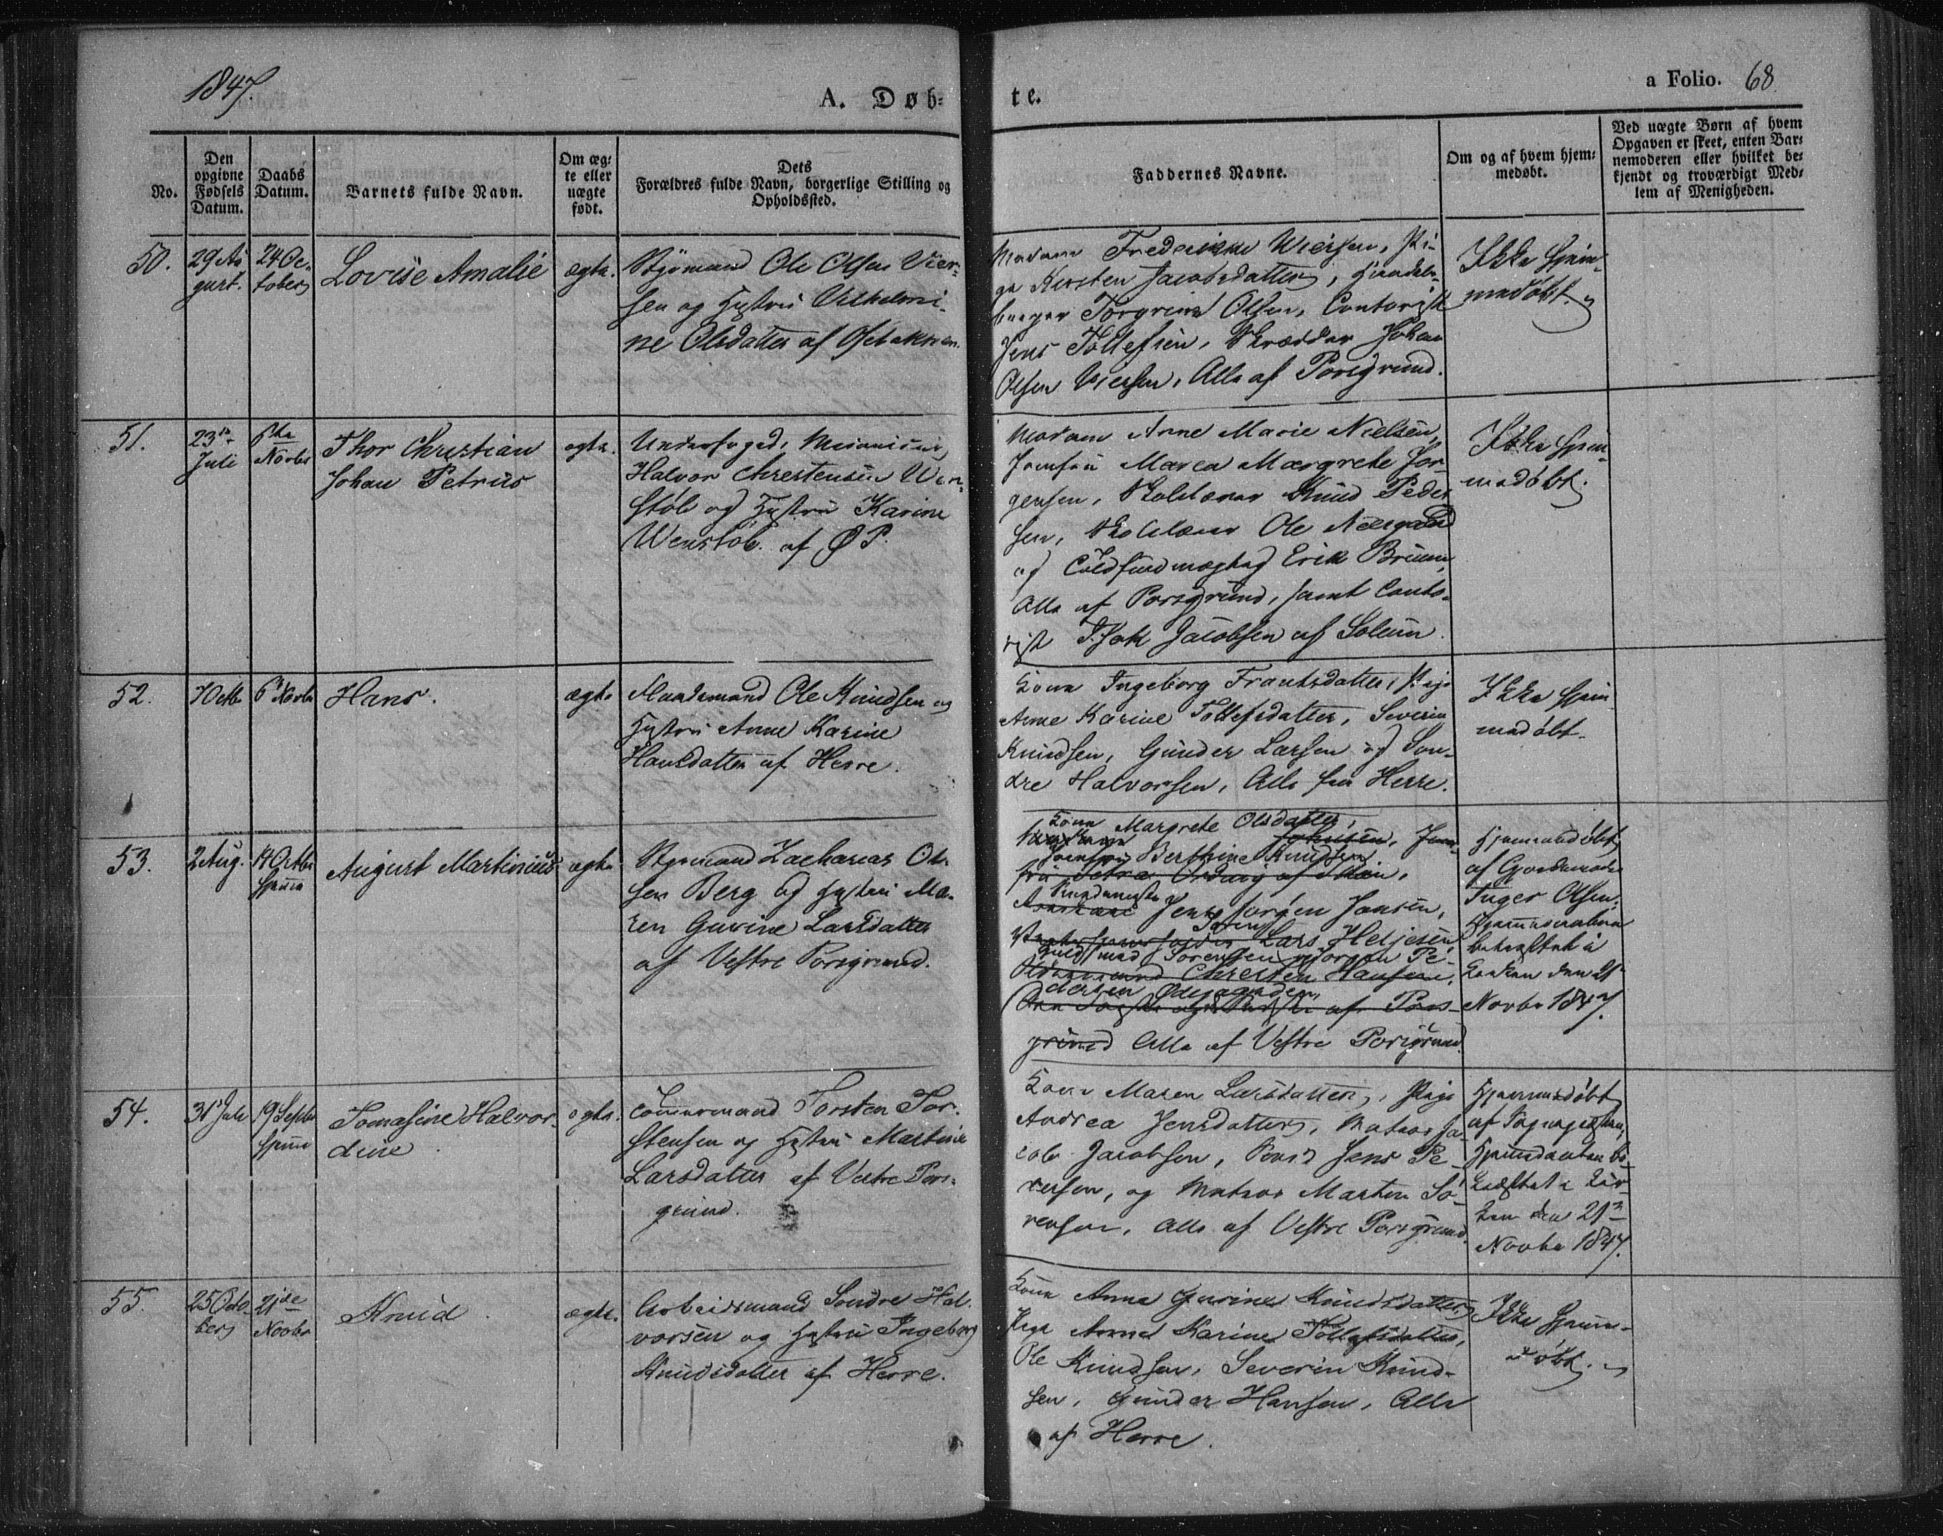 1847.
A. Døb-
te.
a Folio. 68
No.
Den
opgivne
Fødsels
Datum.
Daabs
Datum.
Barnets fulde Navn.
Om æg-
te eller
uægte
født.
Dets
Forældres fulde Navn, borgerlige Stilling og
Opholdssted.
Faddernes Navne.
Om og af hvem hjem-
medøbt.
Ved uægte Børn af hvem
Opgaven er skeet, enten Bar-
nemoderen eller hvilket be-
kjendt og troværdigt Med-
lem af Menigheden.
50.
29 Au
gust.
24 Oc-
tober
Lovise Amalie
ægte.
Styrmand Ole Olsen Vier-
sen og Hustru Vilhelmi-
ne Olsdatter af
Madam Frederikke Wiersen, Pi-
ge Kirsten Jacobsdatter, Handels-
borger Torgrim Olsen, Contorist
Jens Tollefsen, Skrædder Johan
Olsen Viersen, Alle af Porsgrund.
Ikke hjem-
medøbt.
51.
23de
Juli
Novbr
Thor Christian
Johan Petrus
egte.
Underfoged,
Halvor Christensen Wen-
støb og Hustru Karine
Wenstøb. af Ø P.
Madam Anne Marie Nielsen,
Jomfru Maren Margrete Jør-
gensen, Skolelærer Knud Peder
sen, Skolelærer Ole
og Toldfuldmægtig Erik Bruun,
Alle af Porsgrund, samt Conto-
rist Isak Jacobsen af Solum.
Ikke hjem-
medøbt.
52.
7 Octb
6 Novbr
Hans.
ægte
Maadsmand Ole Knudsen og
Hustru Anne Karine
Hansdatter af Herre.
Kone Ingeborg Frantsdatter, Pige
Anne Karine Tollefsdatter, Severin
Knudsen, Gunder Larsen og Son-
dre Halvorsen, Alle fra Herre.
Ikke hjem
medøbt.
53.
2 Aug.
14 Octbr
hjem
August Martinius
ægte
Styrmand Zacharias Ol-
sen Berg og Hustru Ma-
ren Gurine Larsdatter
af Vestre Porsgrund.
Kone Margrete Olsdatter,
Jomfru Berthine Knudsen
Jens Jørgen Jansen,
Lars Heljesen
Sørensen Jørgen Pe-
Christen Hansen,
dersen
af Pors-
grund Alle af Vestre Porsgrund.
Hjemmedøbt
af Gjordemoder
Inger Olsen.
Hjemmedaaben
bekræftet i
Kirken den 21
Novbr 1847.
54.
31 Juli
19 Septbr
hjem
Tomasine Halvor-
dine
egte.
Tømmermand Torsten Tor-
stensen og Hustru Martine
Larsdatter af Vestre Pors-
grund.
Kone Maren Larsdatter, Pige
Andrea Jensdatter, Matros Ja-
cob Jacobsen, Jens Pe-
dersen, og Matros Morten Sø-
rensen, Alle af Vestre Porsgrund.
Hjemmedøbt
af Sognepræsten,
Hjemmedaaben be-
kræftet i Kir-
ken den 21de
Novbr 1847.
55.
25 Octo-
ber
21de
Novbr
Knud
ægte.
Arbeidsmand Sondre Hal-
vorsen og Hustru Ingeborg
Knudsdatter af Herre.
Kone Anne Gurine Knudsdatter,
Pige Anne Karine Tollefsdatter,
Ole Knudsen, Severin Knud-
sen, Gunder Hansen, Alle
af Herre.
Ikke hjem-
døbt.